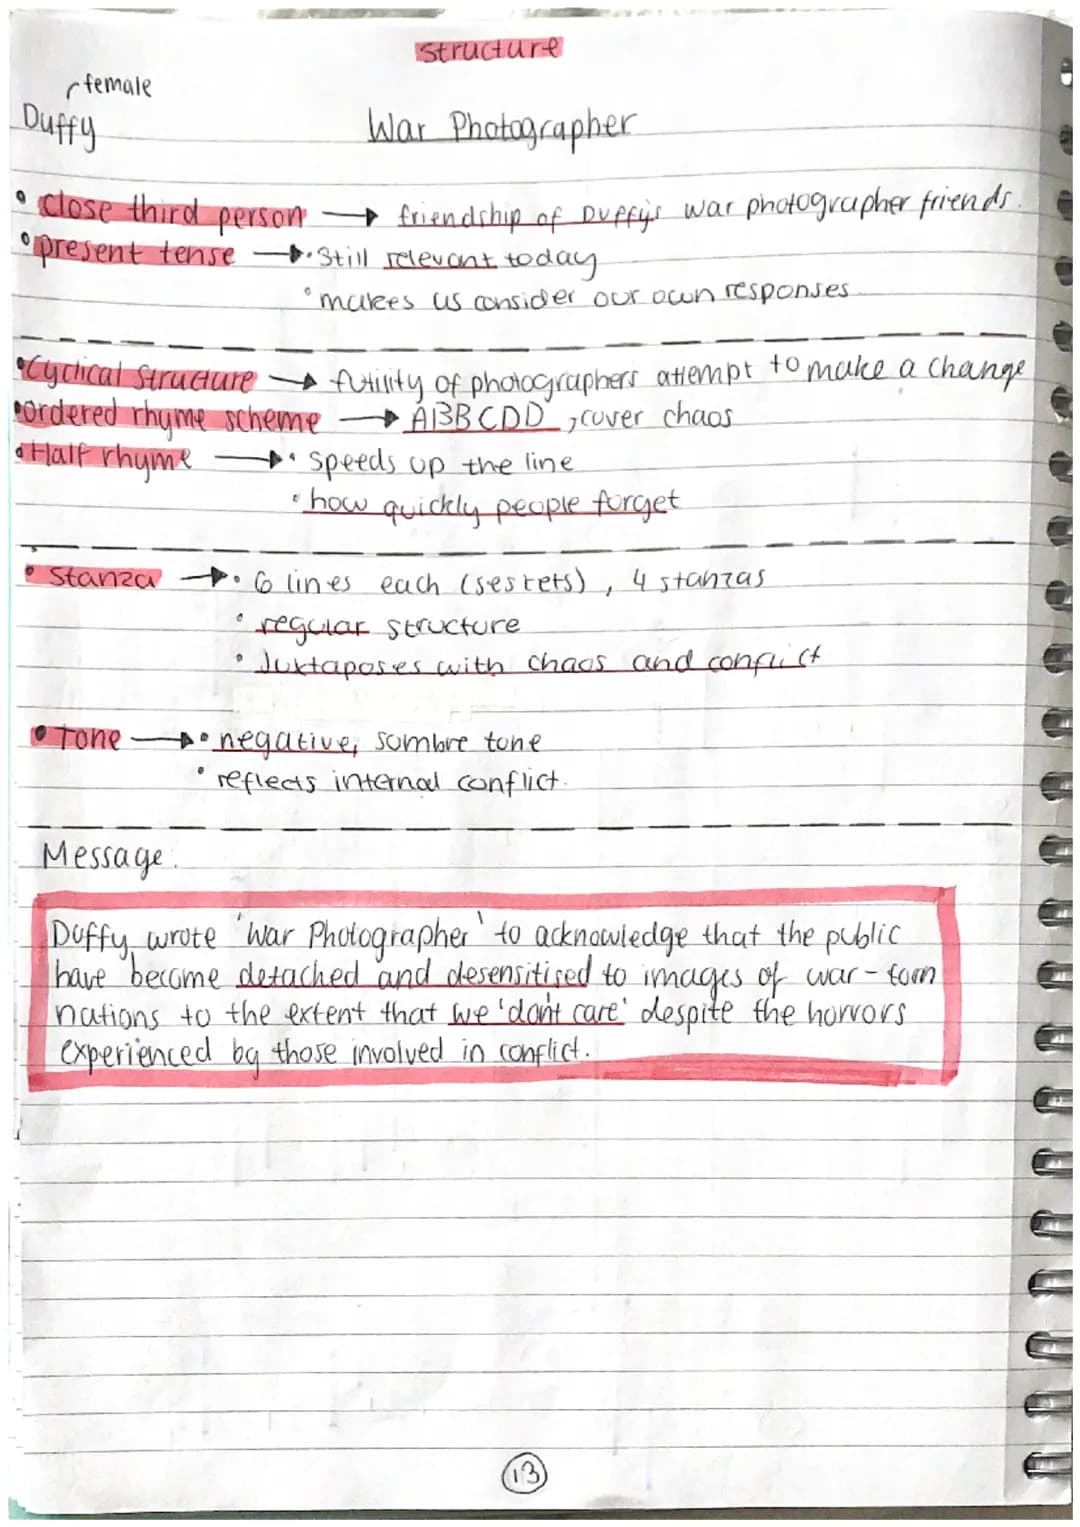 Structure
female
Duffy
War Photographer
• close third person → friendship of Duffy's war photographer friends.
• present tense → • Still relevant today
• makes us consider our own responses
• Cyclical structure → futility of photographers attempt to make a change
• ordered rhyme scheme → ABBCDD, cover chaos
• Half rhyme → • speeds up the line
• how quickly people forget
• Stanza → • 6 lines each (sestets), 4 stanzas
• regular structure
• Juxtaposes with chaos and conflict
• Tone → • negative, sombre tone
• reflects internal conflict.
Message:
Duffy wrote 'War Photographer' to acknowledge that the public
have become detached and desensitised to images of war-torn
nations to the extent that we 'don't care' despite the horrors
experienced by those involved in conflict.
13